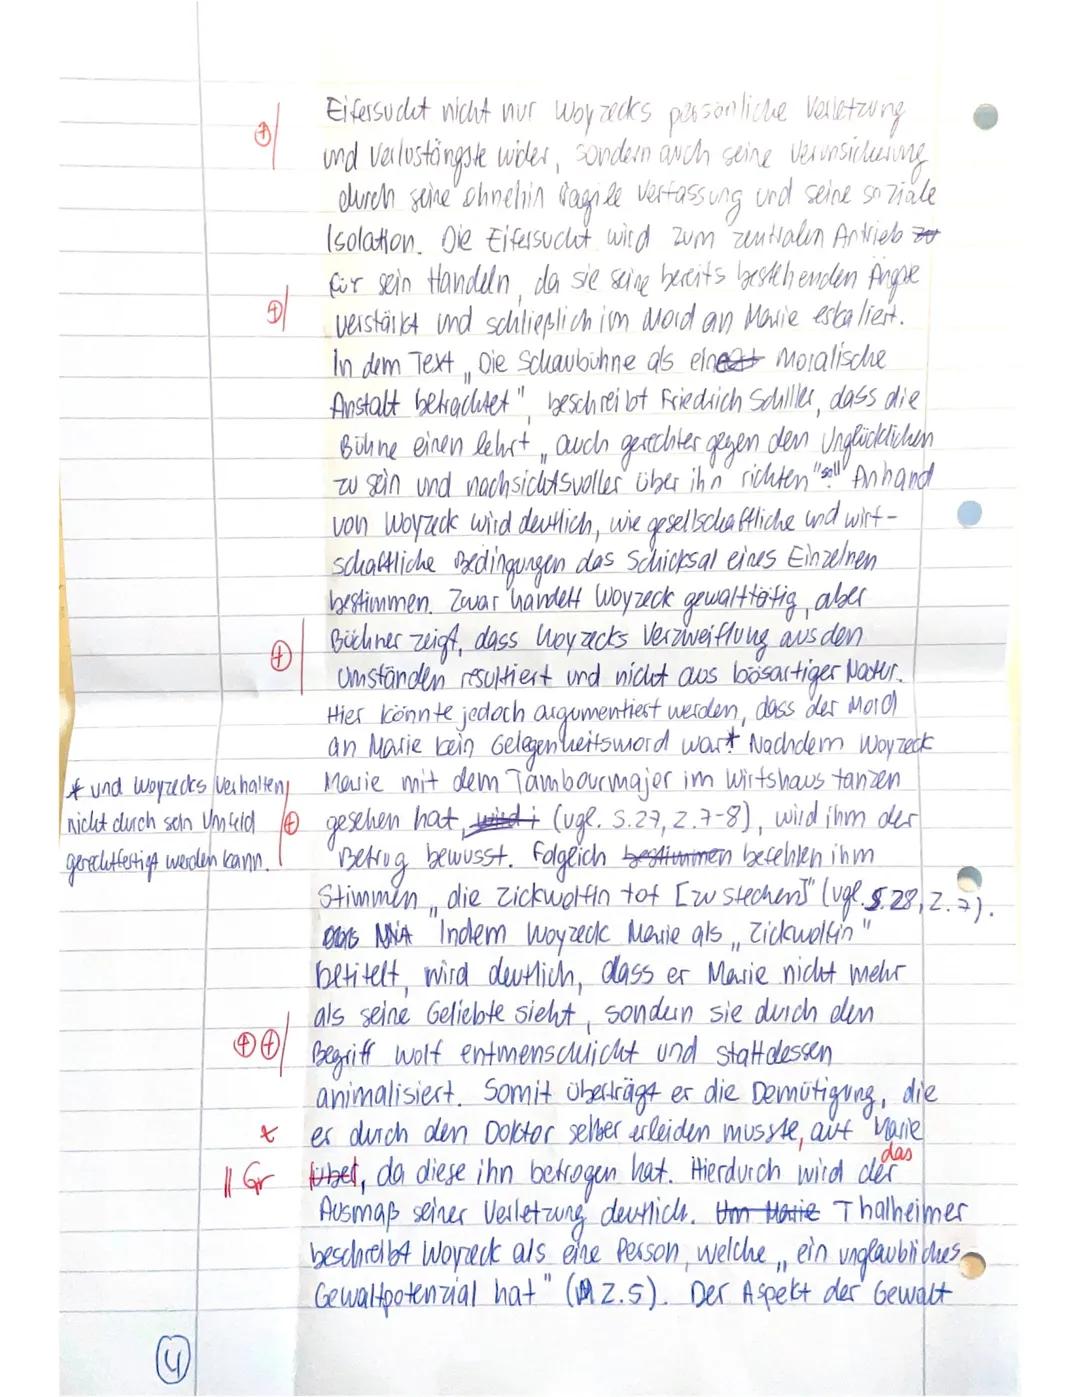 Eifersucht nicht nur Woyzecks persönliche Verletzung
und Verlustängste wider, sondern auch seine Verunsicherung
durch seine ohnehin fragile Verfassung und seine soziale
Isolation. Die Eifersucht wird zum zentralen Antrieb zu
für sein Handeln, da sie seine bereits bestehenden Ängste
verstärkt und schließlich im Mord an Marie eskaliert.
In dem Text „Die Schaubühne als eine Moralische
Anstalt betrachtet", beschreibt Friedrich Schiller, dass die
Bühne einen lehrt „auch gerechter gegen den Unglücklichen
zu sein und nachsichtsvoller über ihn richten" soll. Anhand
von Woyzeck wird deutlich, wie gesellschaftliche und wirt-
schaftliche Bedingungen das Schicksal eines Einzelnen
bestimmen. Zwar handelt Woyzeck gewalttätig, aber
Büchner zeigt, dass Woyzecks Verzweiflung aus den
Umständen resultiert und nicht aus bösartiger Natur.
Hier könnte jedoch argumentiert werden, dass der Mord
an Marie kein Gelegenheitsmord war.* Nachdem Woyzeck
* und Woyzecks Verhalten
nicht durch sein Umfeld
gerechtfertigt werden kann.
Marie mit dem Tambourmajor im Wirtshaus tanzen
gesehen hat, wird (vgl. S.27, Z.7-8), wird ihm der
Betrug bewusst. Folglich bestimmen befehlen ihm
Stimmen „die Zickwolfin tot [zu stechen]" (vgl. S.28, Z.7).
Indem Woyzeck Marie als „Zickwolfin"
betitelt, wird deutlich, dass er Marie nicht mehr
als seine Geliebte sieht, sondern sie durch den
Begriff Wolf entmenschlicht und stattdessen
animalisiert. Somit überträgt er die Demütigung, die
x er durch den Doktor selber erleiden musste, auf Marie
|| Gr über, da diese ihn betrogen hat. Hierdurch wird der das
Ausmaß seiner Verletzung deutlich. Um Marie Thalheimer
beschreibt Woyzeck als eine Person, welche „ein unglaubliches
Gewaltpotenzial hat" (M Z.5). Der Aspekt der Gewalt
4